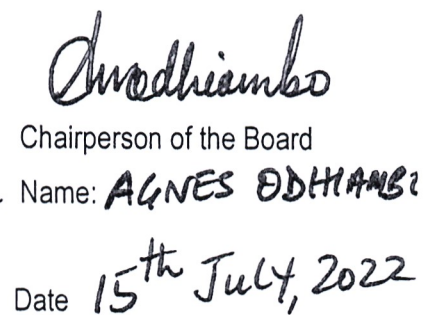 Chairperson of the Board
Name: AGNES ODHIAMBO
Date 15th JULY, 2022